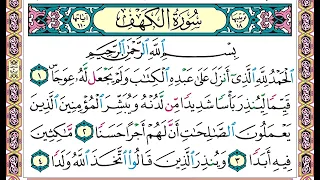 سُورَةُ الْكَهْفِ
بِسْمِ اللَّهِ الرَّحْمَٰنِ الرَّحِيمِ
الْحَمْدُ لِلَّهِ الَّذِي أَنزَلَ عَلَىٰ عَبْدِهِ الْكِتَابَ وَلَمْ يَجْعَل لَّهُ عِوَجًا ۜ ١
قَيِّمًا لِّيُنذِرَ بَأْسًا شَدِيدًا مِّن لَّدُنْهُ وَيُبَشِّرَ الْمُؤْمِنِينَ الَّذِينَ
يَعْمَلُونَ الصَّالِحَاتِ أَنَّ لَهُمْ أَجْرًا حَسَنًا ٢ مَّاكِثِينَ
فِيهِ أَبَدًا ٣ وَيُنذِرَ الَّذِينَ قَالُوا اتَّخَذَ اللَّهُ وَلَدًا ٤